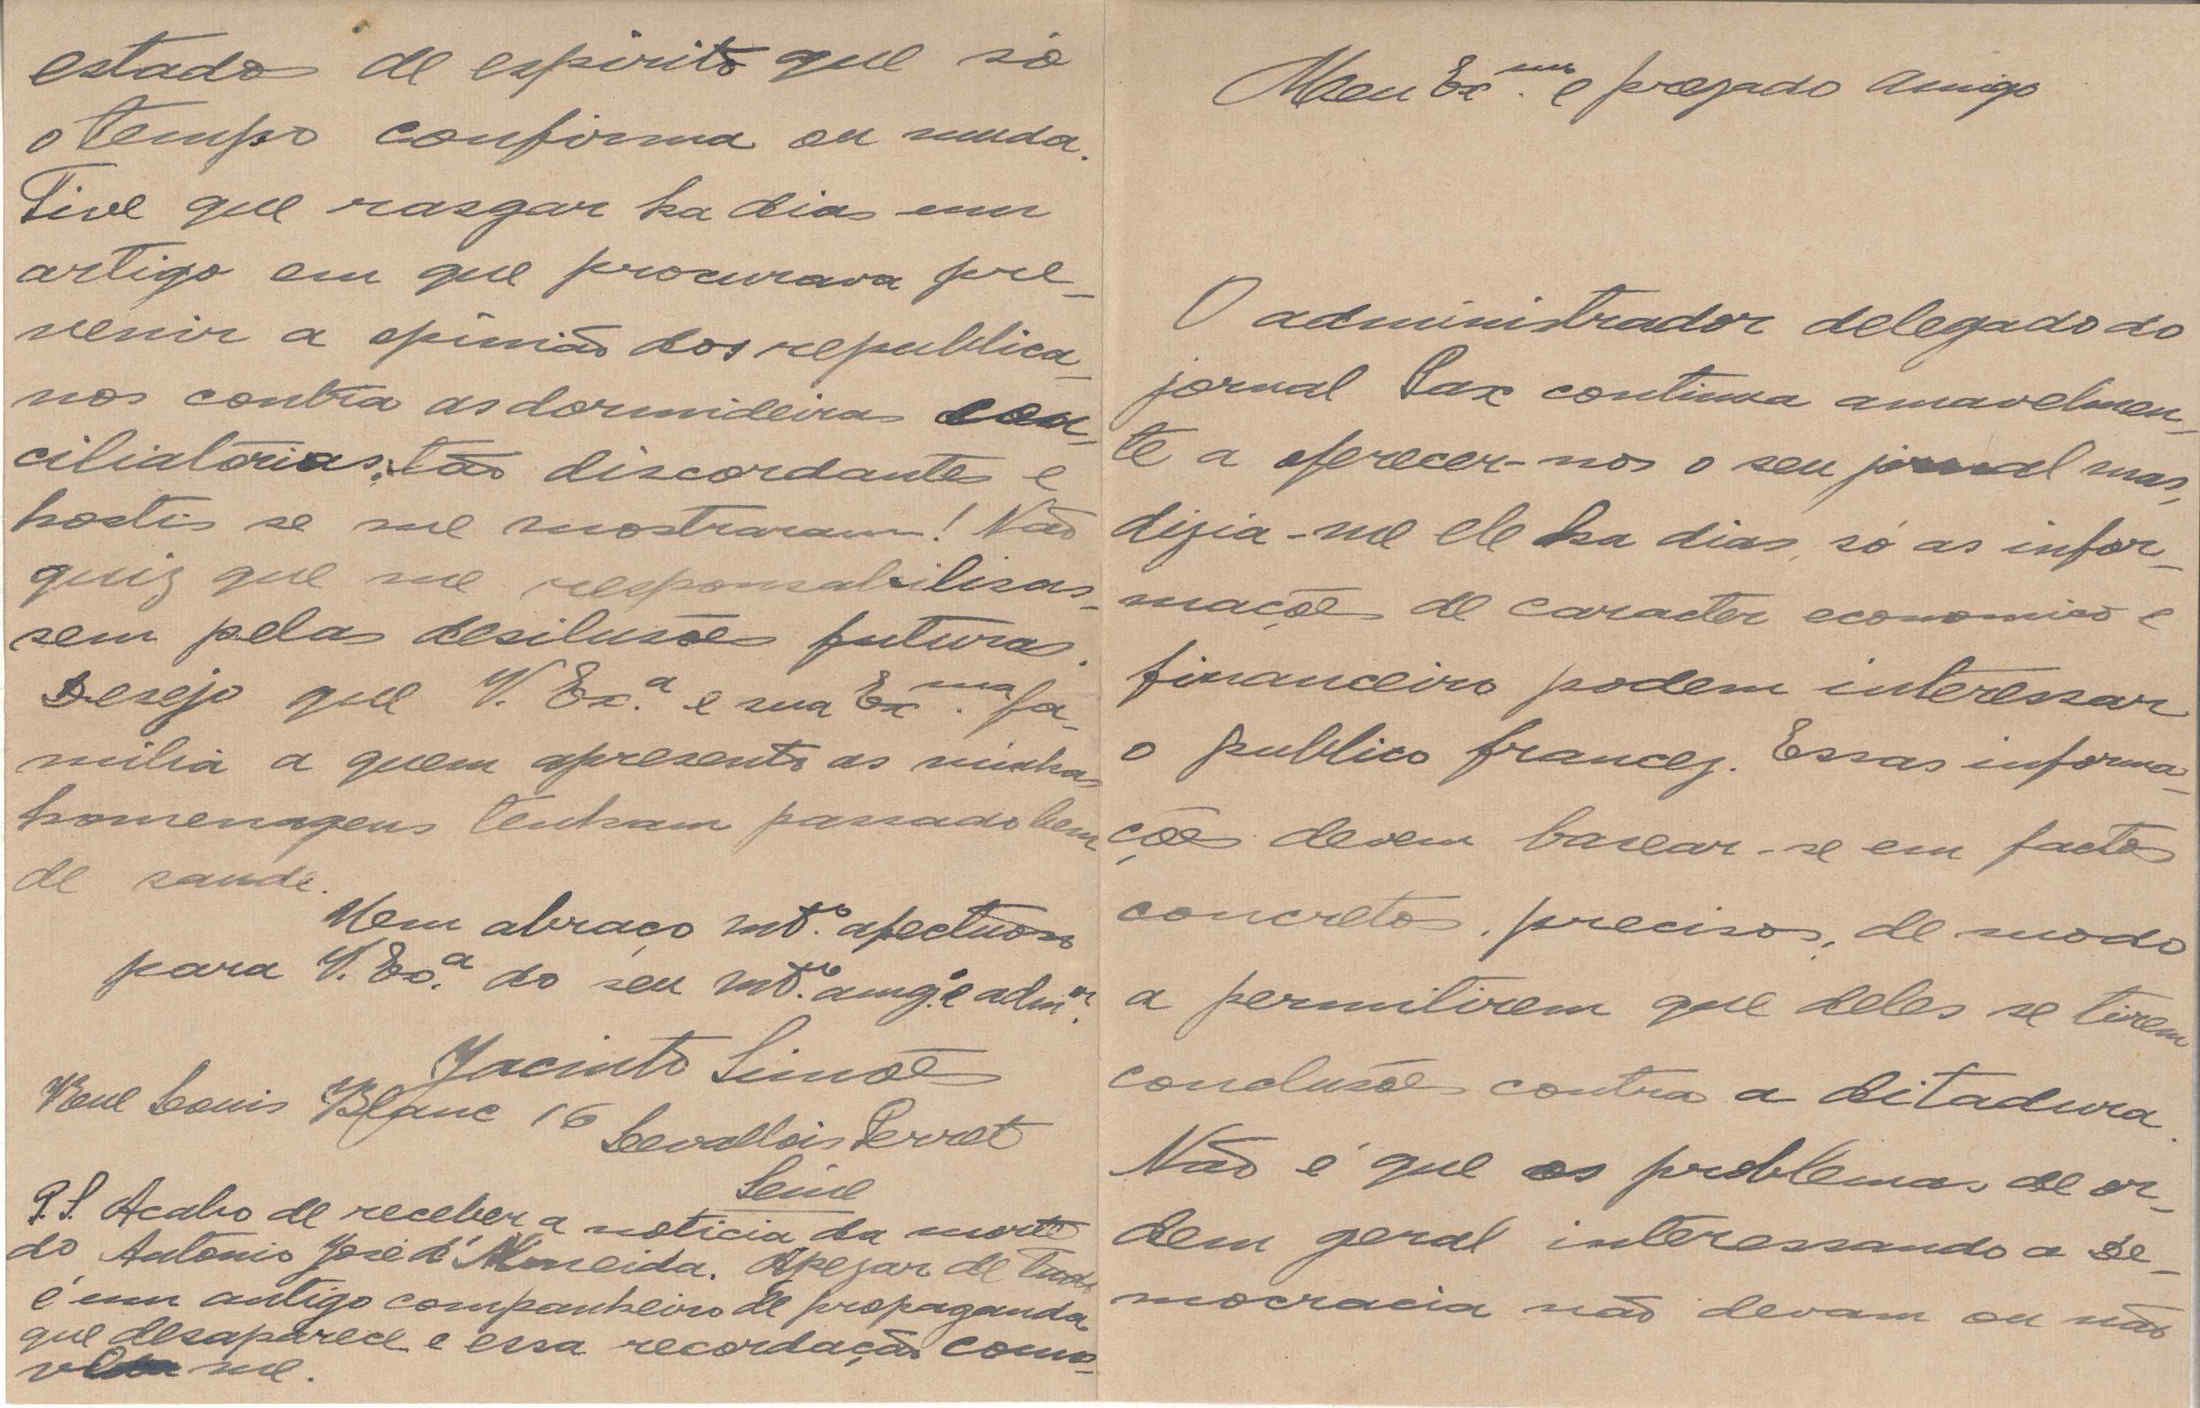 Meu Ex.mo e prezado Amigo
O administrador delegado do
jornal Pax continua amavelmen-
te a oferecer-nos o seu jornal mas,
dizia-me ele ha dias, só as infor-
mações de caracter economico e
financeiro podem interessar
o publico francez. Essas informa-
ções devem basear-se em factos
concretos, precisos, de modo
a permitirem que deles se tirem
conclusões contra a ditadura.
Não é que os problemas de or-
dem geral interessando a De-
mocracia não devam ou não
estado de espirito que só
o tempo confirma ou muda.
Tive que rasgar ha dias um
artigo em que procurava pre-
venir a opinião dos republica-
nos contra as dormideiras con-
ciliatórias, tão discordantes e
hostis se me mostraram! Não
quiz que me responsabilisas-
sem pelas desilusões futuras.
Desejo que V. Ex.a e sua Ex.ma fa-
milia a quem apresento as minhas
homenagens tenham passado bem
de saude.
Um abraço mt.o afectuoso
para V. Ex.a do seu mt.o amg.o e adm.or
Jacinto Simões
Rue Louis Blanc 16
Levallois Perret
Seine
P.S. Acabo de receber a noticia da morte
do Antonio José d'Almeida. Apezar de tudo
é um antigo companheiro de propaganda
que desaparece e essa recordação como-
ve me.